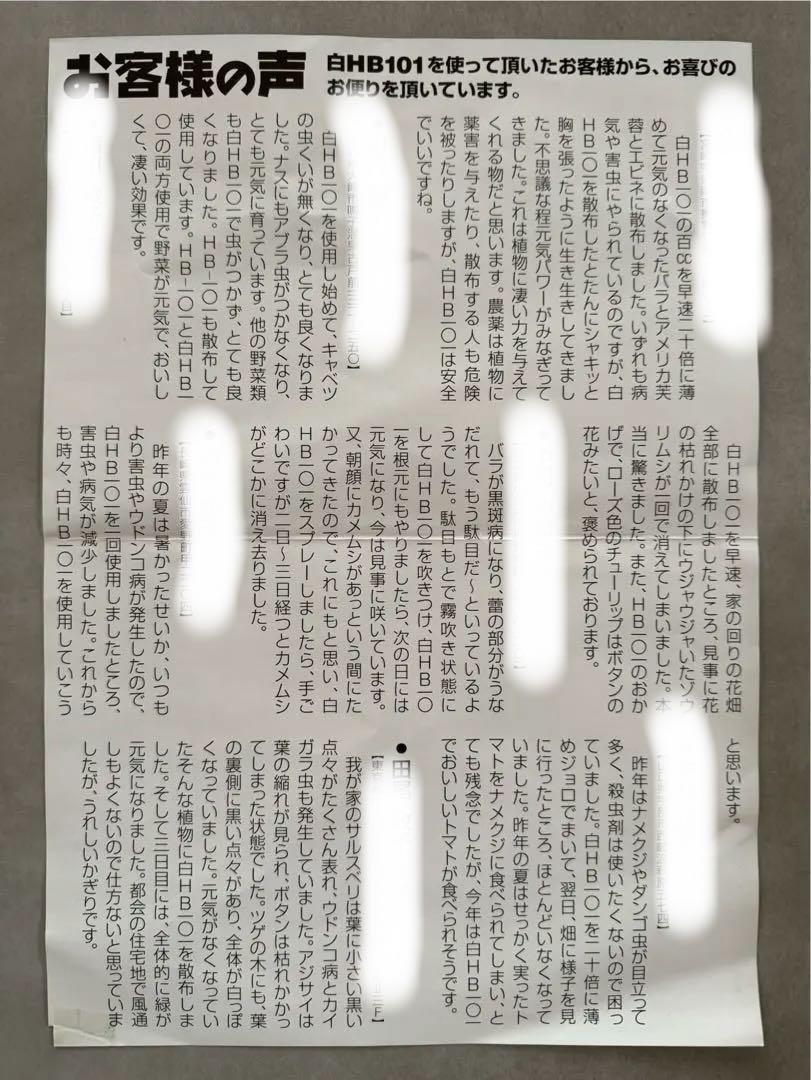 お客様の声
白HB101を使って頂いたお客様から、お喜びの
お便りを頂いています。
白HB一〇一の百㏄を早速二十倍に薄
めて元気のなくなったバラとアメリカ芙
蓉とエビネに散布しました。いずれも病
気や害虫にやられているのですが、白
HB一〇一を散布したとたんにシャキッと
胸を張ったように生き生きしてきまし
た。不思議な程元気パワーがみなぎって
きました。これは植物に凄い力を与えて
くれる物だと思います。農薬は植物に
薬害を与えたり、散布する人も危険
を被ったりしますが、白HB一〇一は安全
でいいですね。
白HB一〇一を使用し始めて、キャベツ
の虫くいが無くなり、とても良くなりま
した。ナスにもアブラ虫がつかなくなり、
とても元気に育っています。他の野菜類
も白HB一〇一で虫がつかず、とても良
くなりました。HB一一〇一も散布して
使用しています。HB一一〇一と白HB一
〇一の両方使用で野菜が元気で、おいし
くて、凄い効果です。
白HB一〇一を早速、家の回りの花畑
全部に散布しましたところ、見事に花
の枯れかけの下にウジャウジャいたゾウ
リムシが一回で消えてしまいました。本
当に驚きました。また、HB一〇一のおか
げで、ローズ色のチューリップはボタンの
花みたいと、褒められております。
バラが黒斑病になり、蕾の部分がうな
だれて、もう駄目だ〜といっているよ
うでした。駄目もとで霧吹き状態に
して白HB一〇一を吹きつけ、白HB一〇
一を根元にもやりましたら、次の日には
元気になり、今は見事に咲いています。
又、朝顔にカメムシがあっという間にた
かってきたので、これにもと思い、白
HB一〇一をスプレーしましたら、手ご
わいですが二日〜三日経つとカメムシ
がどこかに消え去りました。
昨年の夏は暑かったせいか、いつも
より害虫やウドンコ病が発生したので、
白HB一〇一を二回使用しましたところ、
害虫や病気が減少しました。これから
も時々、白HB一〇一を使用していこう
と思います。
昨年はナメクジやダンゴ虫が目立って
多く、殺虫剤は使いたくないので困っ
ていました。白HB一〇一を二十倍に薄
めジョロでまいて、翌日、畑に様子を見
に行ったところ、ほとんどいなくなって
いました。昨年の夏はせっかく実ったト
マトをナメクジに食べられてしまい、と
ても残念でしたが、今年は白HB一〇一
でおいしいトマトが食べられそうです。
●田
【東
我が家のサルスベリは葉に小さい黒い
点々がたくさん表れ、ウドンコ病とカイ
ガラ虫も発生していました。アジサイは
葉の縮れが見られ、ボタンは枯れかかっ
てしまった状態でした。ツゲの木にも、葉
の裏側に黒い点々があり、全体が白っぽ
くなっていました。元気がなくなってい
たそんな植物に白HB一〇一を散布しま
した。そして三日目には、全体的に緑が
元気になりました。都会の住宅地で風通
しもよくないので仕方ないと思っていま
したが、うれしいかぎりです。